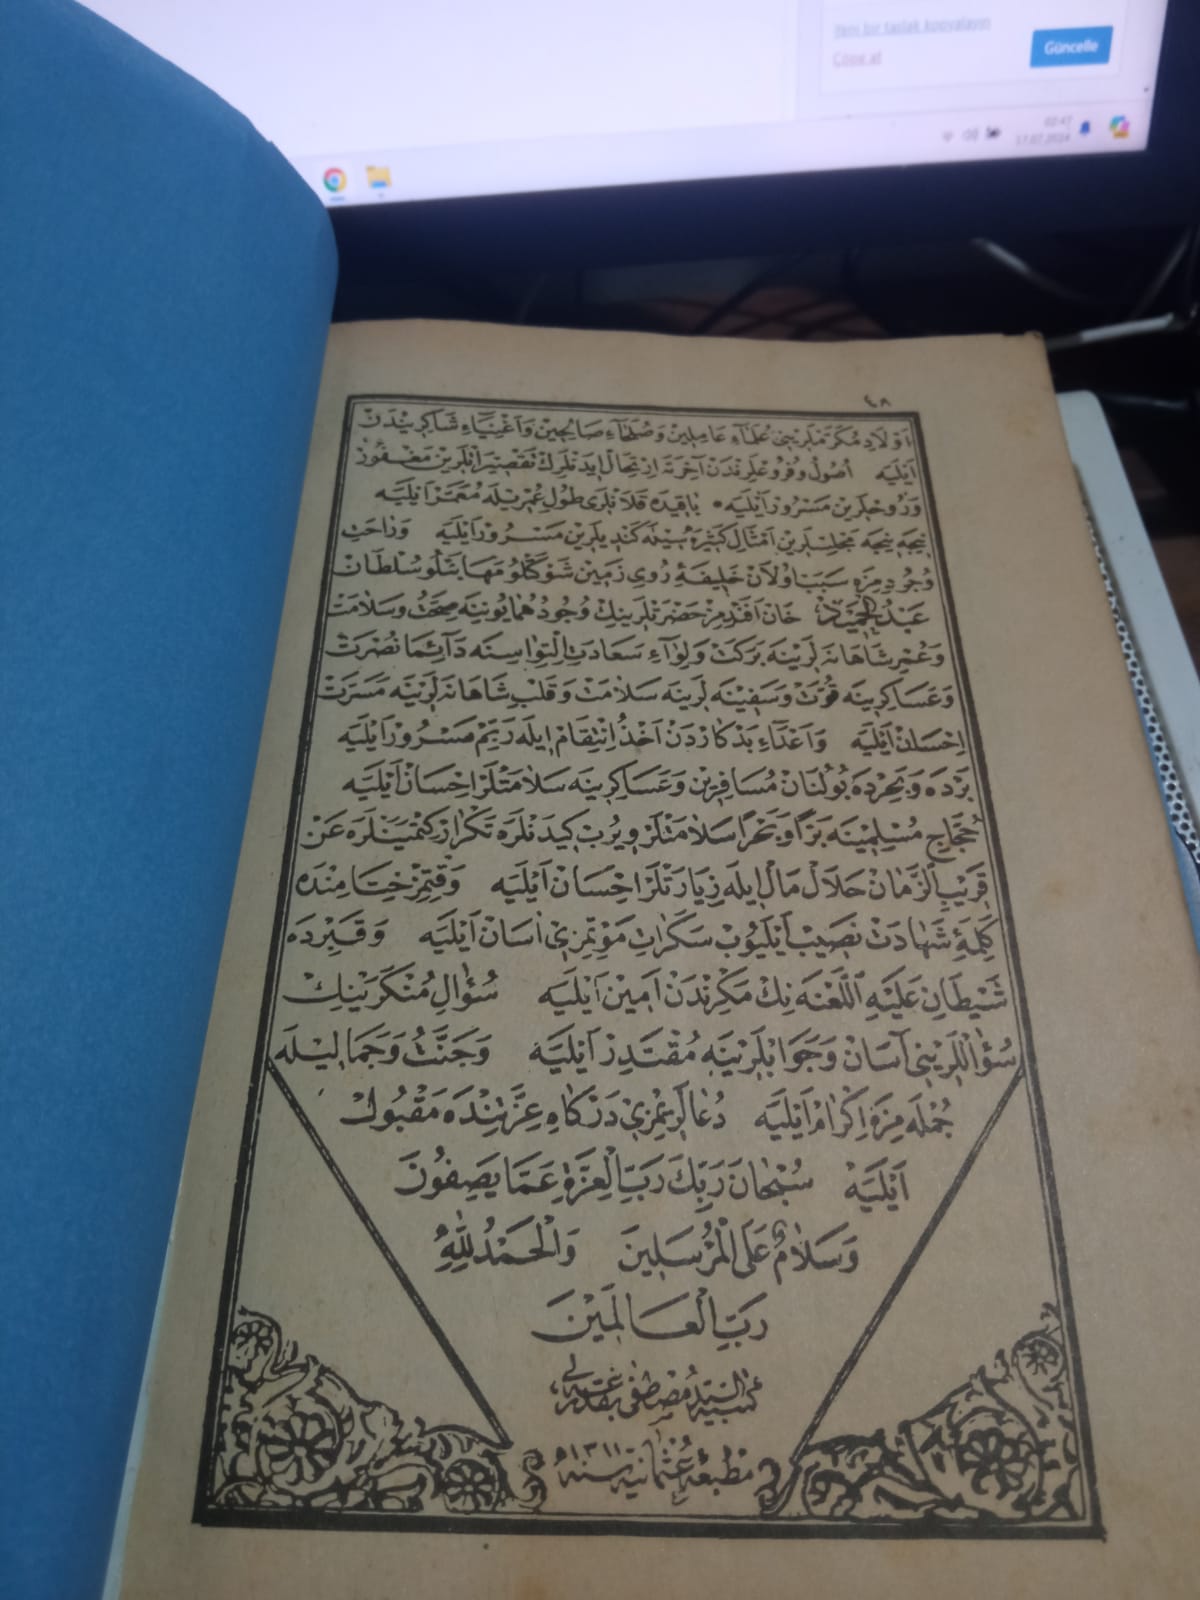 Yeni bir taslak kopyalayın
Çöpe at
Güncelle
02:47
17.07.2024
٤٨
اَوْلَادِ مُكَرَّمَلَرِينِى عُلَمَاءِ عَامِلِينْ وَصُلَحَاءِ صَالِحِينْ وَاَغْنِيَاءِ شَاكِرِينْدَنْ
اَيْلَيَه اُصُولْ وُفُرُوعْلَرِنْدَنْ آخِرَتَه اِرْتِحَالْ اِيدَنْلَرِكْ تَقْصِيرَاتْلَرِينْ مَغْفُورْ
وَرُوحْلَرِينْ مَسْرُورْ اَيْلَيَه بَاقِيدَه قَلَانْلَرِى طُولِ عُمْرِيلَه مُعَمَّرْ اَيْلَيَه
نِيجَه نِيجَه مَجْلِسْلَرِينْ اَمْثَالِ كَثِيرَه سِينَه كَنْدِيلَرِينْ مَسْرُورْ اَيْلَيَه وَرَاحَتِ
وُجُودِمِزَه سَبَبْ اوُلَانْ خَلِيفَهٔ رُوىِ زَمِينْ شَوْكَتْلُو مَهَابَتْلُو سُلْطَانْ
عَبْدُ الْحَمِيدْ خَانْ اَفَنْدِمِزْ حَضْرَتْلَرِينِكْ وُجُودُ هُمَايُونِينَه صِحَّتْ وَسَلَامَتْ
وَعُمْرِ شَاهَانَه لَرِينَه بَرَكَتْ وَلِوَاءِ سَعَادَتْ اِلْتِوَاسِنَه دَآئِمَا نُصْرَتْ
وَعَسَاكِرِينَه قُوَّتْ وَسَفِينَه لَرِينَه سَلَامَتْ وَقَلْبِ شَاهَانَه لَرِينَه مَسَرَّتْ
اِحْسَانْ اَيْلَيَه وَاَعْدَاءِ بَدْكَارْدَنْ اَخْذُ اِنْتِقَامْ اِيلَه رَبِّمْ مَسْرُورْ اَيْلَيَه
بَرْدَه وَبَحِرْدَه بُولُنَانْ مُسَافِرِينْ وَعَسَاكِرِينَه سَلَامَتْلَرْ اِحْسَانْ اَيْلَيَه
حُجَّاجِ مُسْلِمِينَه بَرًّا وَبَحْرًا سَلَامَتْلَرْ وِيرُبْ كِيدَنْلَرَه تَكْرَارْ كِتْمِيَنْلَرَه عَنْ
قَرِيبِ الزَّمَانْ حَلَالْ مَالْ اِيلَه زِيَارَتْلَرْ اِحْسَانْ اَيْلَيَه وَقْتِمِزْ خِتَامِنْدَه
كَلِمَهٔ شَهَادَتْ نَصِيبْ اَيْلَيُوبْ سَكَرَاتِ مَوْتِمِزِى اٰسَانْ اَيْلَيَه وَقَبِرْدَه
شَيْطَانِ عَلَيْهِ اللَّعْنَه نِكْ مَكْرِنْدَنْ اَمِينْ اَيْلَيَه سُؤَالِ مُنْكَرَيْنِكْ
سُؤَاللَرِينِى آسَانْ وَجَوَابْلَرِينَه مُقْتَدِرْ اَيْلَيَه وَجَنَّتْ وَجَمَالِيلَه
جُمْلَه مِزَه اِكْرَامْ اَيْلَيَه دُعَالَرِيمِزِى دَرْكَاهِ عِزَّتِنْدَه مَقْبُولْ
اَيْلَيَه سُبْحَانَ رَبِّكَ رَبِّ الْعِزَّةِ عَمَّا يَصِفُونَ
وَسَلَامٌ عَلَى الْمُرْسَلِينَ وَالْحَمْدُ لِلّٰهِ
رَبِّ الْعَالَمِينَ
السيد مصطفى
مطبعهٔ عثمانيه سنه ١٣١١